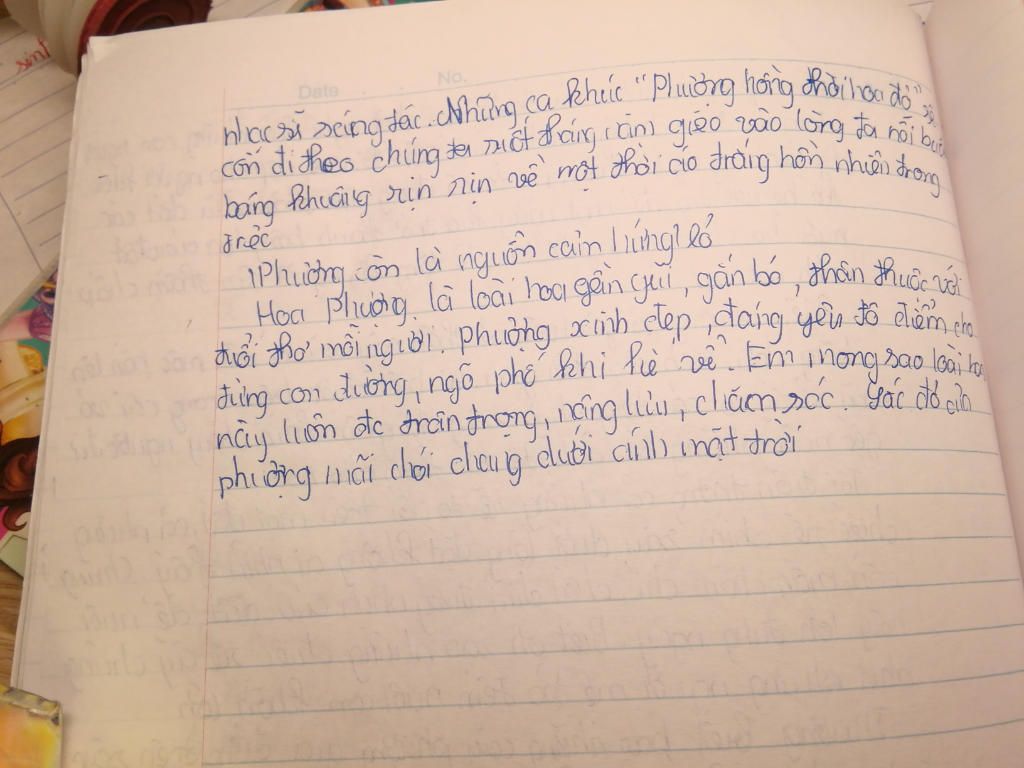 Date No.
nhạc sĩ sáng tác. Những ca khúc "Phượng hồng thời hoa đỏ" sẽ
còn đi theo chúng ta suốt tháng năm gieo vào lòng ta nỗi buồn
báng khuâng rịn rịn về một thời áo trắng hồn nhiên trong
trẻo
Phượng còn là nguồn cảm hứng
Hoa Phượng là loài hoa gần gũi, gắn bó, thân thuộc với
tuổi thơ mỗi người. Phượng xinh đẹp, đáng yêu tô điểm cho
từng con đường, ngõ phố khi hè về. Em mong sao loài hoa
này luôn đc trân trọng, nâng lưu, chăm sóc. Sắc đỏ của
phượng mãi chói chang dưới ánh mặt trời